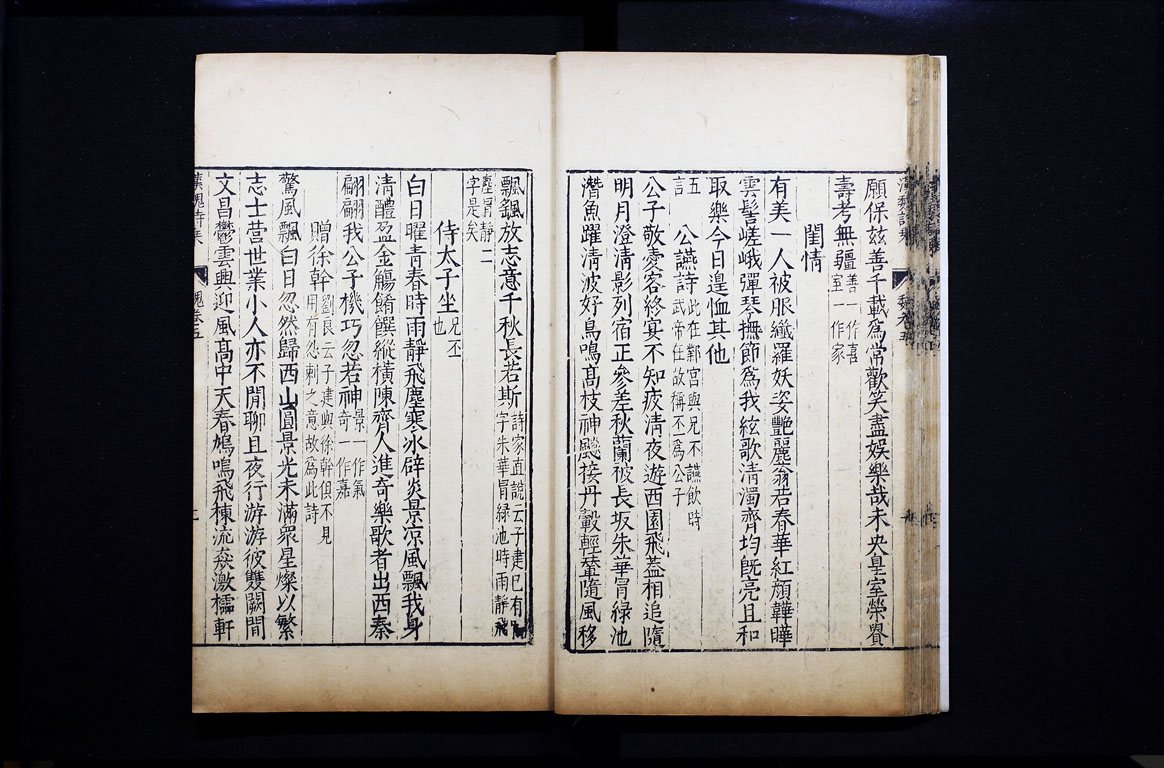 願保茲善千載爲常歡笑盡娛樂哉未央皇室榮貴
壽考無疆善一作喜室一作家
閨情
有美一人被服纖羅妖姿艷麗蓊若春華紅顏韡曄
雲髻嵯峨彈琴撫節爲我絃歌清濁齊均旣亮且和
取樂今日遑恤其他
五言
公讌詩此在鄴宮與兄丕讌飲時武帝在故稱丕爲公子
公子敬愛客終宴不知疲清夜遊西園飛蓋相追隨
明月澄清影列宿正參差秋蘭被長坂朱華冒綠池
潛魚躍清波好鳥鳴高枝神飈接丹轂輕輦隨風移
飄颻放志意千秋長若斯詩家直說云子建已有字朱華冒綠池時雨靜飛
塵冐靜二字是矣
侍太子坐兄丕也
白日曜青春時雨靜飛塵寒冰辟炎景凉風飄我身
清醴盈金觴餚饌縱橫陳齊人進奇樂歌者出西秦
翩翩我公子機巧忽若神景一作氣奇一作嘉
贈徐幹劉良云子建與徐幹俱不見用有怨刺之意故爲此詩
驚風飄白日忽然歸西山圓景光未滿衆星燦以繁
志士营世業小人亦不閒聊且夜行游游彼雙闕間
文昌鬱雲興迎風高中天春鳩鳴飛棟流猋激櫺軒
漢魏詩集
魏卷五